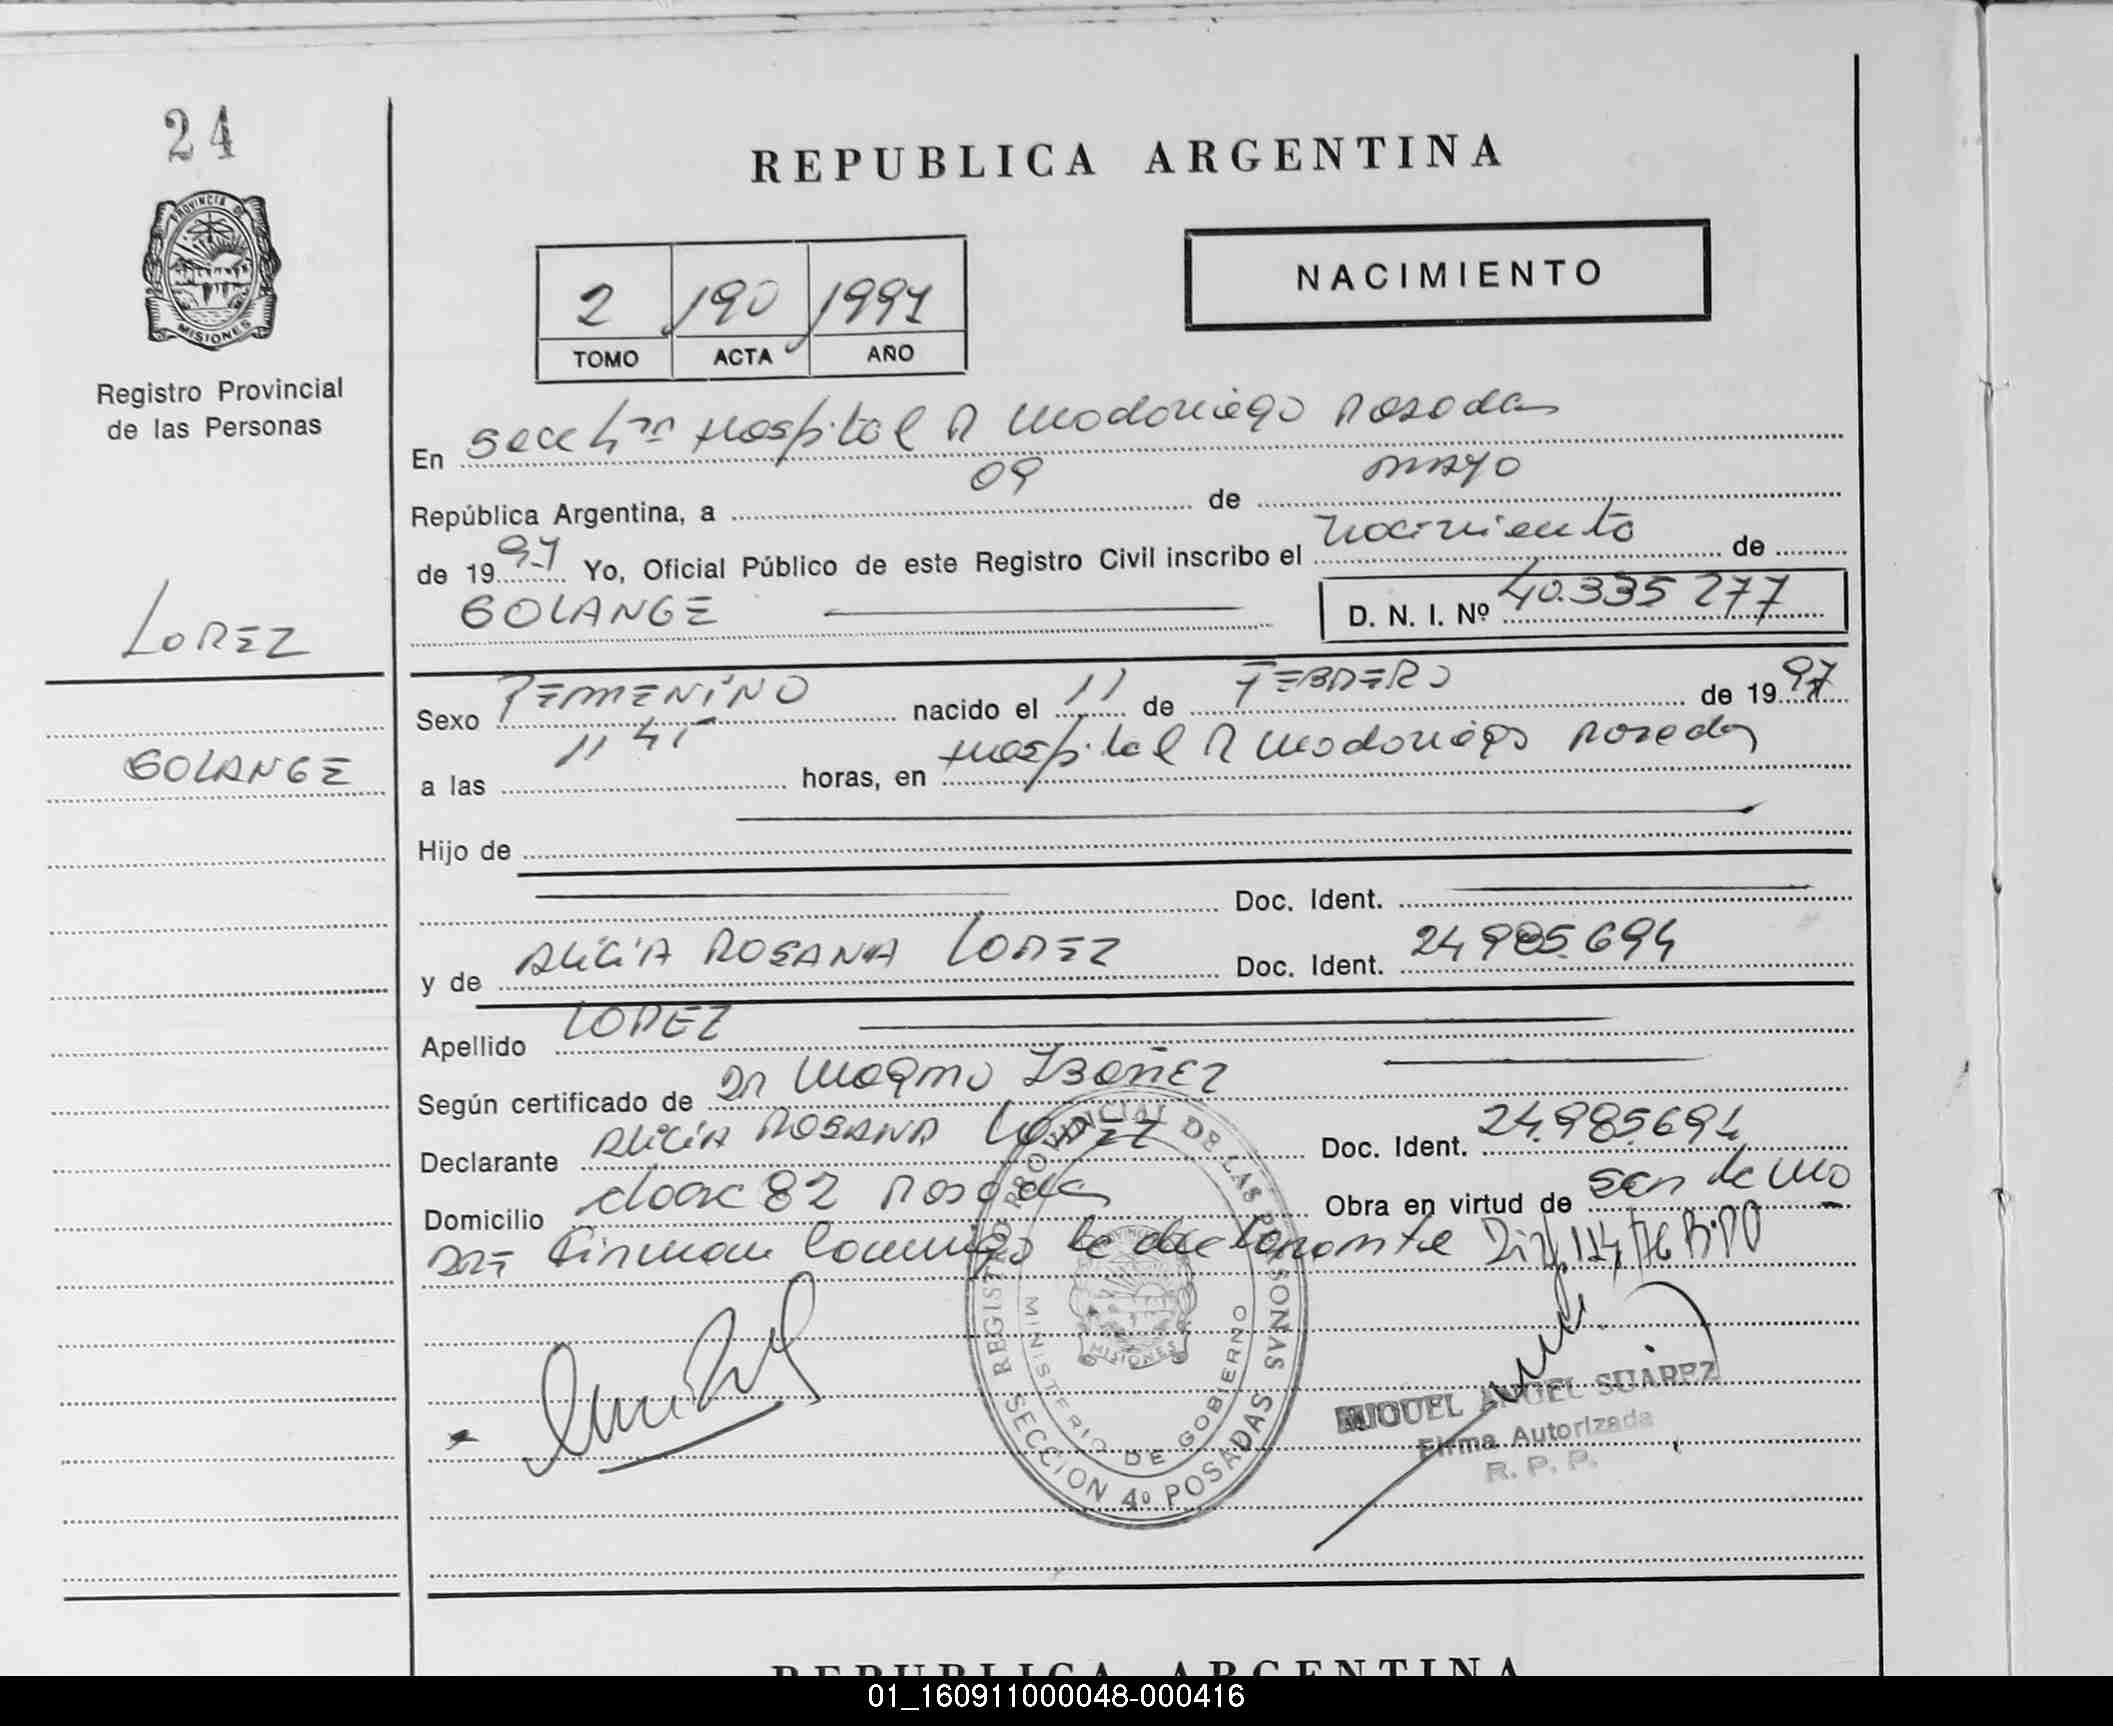 24
REPUBLICA ARGENTINA
PROVINCIA DE
MISIONES
Registro Provincial
de las Personas
2 190 1997
TOMO ACTA AÑO
NACIMIENTO
En Secc 4ta Hospital R Madariaga Posadas
República Argentina, a 09 de mayo
de 1997 Yo, Oficial Público de este Registro Civil inscribo el nacimiento de
SOLANGE D. N. I. Nº 40.335 277
LOPEZ
SOLANGE
Sexo FEMENINO nacido el 11 de FEBRERO de 1997
a las 11 45 horas, en Hospital R Madariaga Posadas
Hijo de
Doc. Ident.
y de ALICIA ROSANA LOPEZ Doc. Ident. 24 985.694
Apellido LOPEZ
Según certificado de Dr Magno Ibañez
Declarante ALICIA ROSANA LOPEZ Doc. Ident. 24.985.694
Domicilio 82 Posadas Obra en virtud de ser la madre
Firman conmigo la declarante
REGISTRO PROVINCIAL DE LAS PERSONAS
MINISTERIO DE GOBIERNO
MISIONES
SECCION 4º POSADAS
MIGUEL ANGEL SUAREZ
Firma Autorizada
R. P. P.
REPUBLICA ARGENTINA
01_160911000048-000416